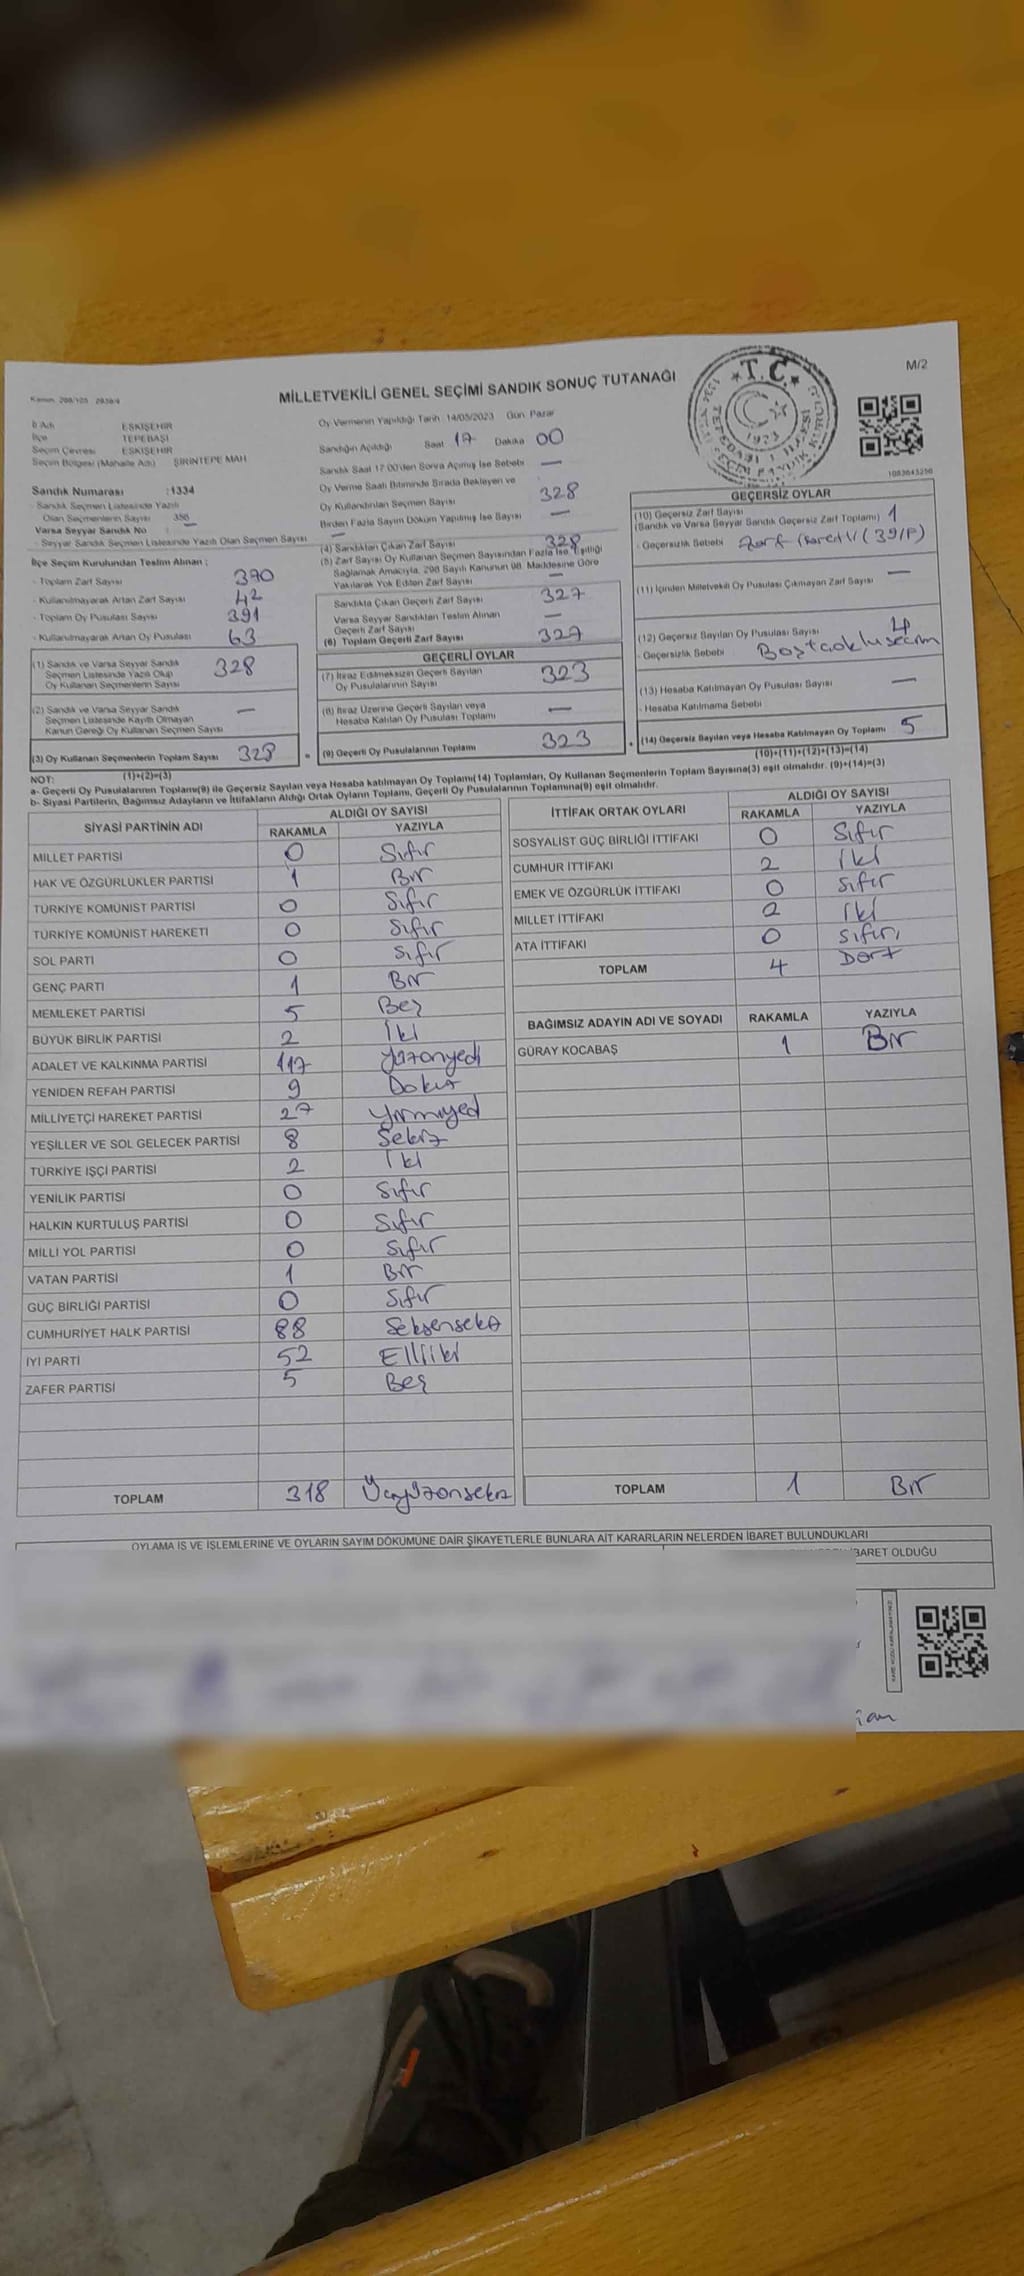 M/2
MİLLETVEKİLİ GENEL SEÇİMİ SANDIK SONUÇ TUTANAĞI
T.C.
1923
İl Adı ESKİŞEHİR
İlçe TEPEBAŞI
Seçim Çevresi ESKİŞEHİR
Seçim Bölgesi (Mahalle Adı) ŞİRİNTEPE MAH
Sandık Numarası :1334
- Sandık Seçmen Listesinde Yazılı
Olan Seçmenlerin Sayısı
Varsa Seyyar Sandık No : —
- Seyyar Sandık Seçmen Listesinde Yazılı Olan Seçmen Sayısı —
İlçe Seçim Kurulundan Teslim Alınan :
- Toplam Zarf Sayısı 370
- Kullanılmayarak Artan Zarf Sayısı 42
- Toplam Oy Pusulası Sayısı 391
- Kullanılmayarak Artan Oy Pusulası 63
(1) Sandık ve Varsa Seyyar Sandık
Seçmen Listesinde Yazılı Olup
Oy Kullanan Seçmenlerin Sayısı 328
(2) Sandık ve Varsa Seyyar Sandık
Seçmen Listesinde Kayıtlı Olmayan
Kanun Gereği Oy Kullanan Seçmen Sayısı —
(3) Oy Kullanan Seçmenlerin Toplam Sayısı 328
(1)+(2)=(3)
Oy Vermenin Yapıldığı Tarih : 14/05/2023 Gün: Pazar
Sandığın Açıldığı Saat 17 Dakika 00
Sandık Saat 17:00'den Sonra Açılmış İse Sebebi —
Oy Verme Saati Bitiminde Sırada Bekleyen ve
Oy Kullandırılan Seçmen Sayısı 328
Birden Fazla Sayım Döküm Yapılmış İse Sayısı —
(4) Sandıktan Çıkan Zarf Sayısı 328
(5) Zarf Sayısı Oy Kullanan Seçmen Sayısından Fazla İse Eşitliği
Sağlamak Amacıyla, 298 Sayılı Kanunun 98. Maddesine Göre
Yakılarak Yok Edilen Zarf Sayısı —
Sandıkta Çıkan Geçerli Zarf Sayısı 327
Varsa Seyyar Sandıktan Teslim Alınan
Geçerli Zarf Sayısı —
(6) Toplam Geçerli Zarf Sayısı 327
GEÇERLİ OYLAR
(7) İtiraz Edilmeksizin Geçerli Sayılan
Oy Pusulalarının Sayısı 323
(8) İtiraz Üzerine Geçerli Sayılan veya
Hesaba Katılan Oy Pusulası Toplamı —
= (9) Geçerli Oy Pusulalarının Toplamı 323
GEÇERSİZ OYLAR
(10) Geçersiz Zarf Sayısı
(Sandık ve Varsa Seyyar Sandık Geçersiz Zarf Toplamı) 1
- Geçersizlik Sebebi
(11) İçinden Milletvekili Oy Pusulası Çıkmayan Zarf Sayısı —
(12) Geçersiz Sayılan Oy Pusulası Sayısı 4
- Geçersizlik Sebebi
(13) Hesaba Katılmayan Oy Pusulası Sayısı —
- Hesaba Katılmama Sebebi
+ (14) Geçersiz Sayılan veya Hesaba Katılmayan Oy Toplamı 5
(10)+(11)+(12)+(13)=(14)
NOT:
a- Geçerli Oy Pusulalarının Toplamı(9) ile Geçersiz Sayılan veya Hesaba katılmayan Oy Toplamı(14) Toplamları, Oy Kullanan Seçmenlerin Toplam Sayısına(3) eşit olmalıdır. (9)+(14)=(3)
b- Siyasi Partilerin, Bağımsız Adayların ve İttifakların Aldığı Ortak Oyların Toplamı, Geçerli Oy Pusulalarının Toplamına(9) eşit olmalıdır.
SİYASİ PARTİNİN ADI ALDIĞI OY SAYISI
RAKAMLA YAZIYLA
MİLLET PARTİSİ 0 Sıfır
HAK VE ÖZGÜRLÜKLER PARTİSİ 1 Bir
TÜRKİYE KOMÜNİST PARTİSİ 0 Sıfır
TÜRKİYE KOMÜNİST HAREKETİ 0 Sıfır
SOL PARTİ 0 Sıfır
GENÇ PARTİ 1 Bir
MEMLEKET PARTİSİ 5 Beş
BÜYÜK BİRLİK PARTİSİ 2 İki
ADALET VE KALKINMA PARTİSİ 117 Yüzonyedi
YENİDEN REFAH PARTİSİ 9 Dokuz
MİLLİYETÇİ HAREKET PARTİSİ 27 Yirmiyed
YEŞİLLER VE SOL GELECEK PARTİSİ 8 Sekiz
TÜRKİYE İŞÇİ PARTİSİ 2 İki
YENİLİK PARTİSİ 0 Sıfır
HALKIN KURTULUŞ PARTİSİ 0 Sıfır
MİLLİ YOL PARTİSİ 0 Sıfır
VATAN PARTİSİ 1 Bir
GÜÇ BİRLİĞİ PARTİSİ 0 Sıfır
CUMHURİYET HALK PARTİSİ 88 Seksensekiz
İYİ PARTİ 52 Elliiki
ZAFER PARTİSİ 5 Beş
TOPLAM 318 Üçyüzonsekiz
İTTİFAK ORTAK OYLARI ALDIĞI OY SAYISI
RAKAMLA YAZIYLA
SOSYALİST GÜÇ BİRLİĞİ İTTİFAKI 0 Sıfır
CUMHUR İTTİFAKI 2 İki
EMEK VE ÖZGÜRLÜK İTTİFAKI 0 Sıfır
MİLLET İTTİFAKI 2 İki
ATA İTTİFAKI 0 Sıfır
TOPLAM 4 Dört
BAĞIMSIZ ADAYIN ADI VE SOYADI RAKAMLA YAZIYLA
GÜRAY KOCABAŞ 1 Bir
TOPLAM 1 Bir
OYLAMA İŞ VE İŞLEMLERİNE VE OYLARIN SAYIM DÖKÜMÜNE DAİR ŞİKAYETLERLE BUNLARA AİT KARARLARIN NELERDEN İBARET BULUNDUKLARI
İBARET OLDUĞU